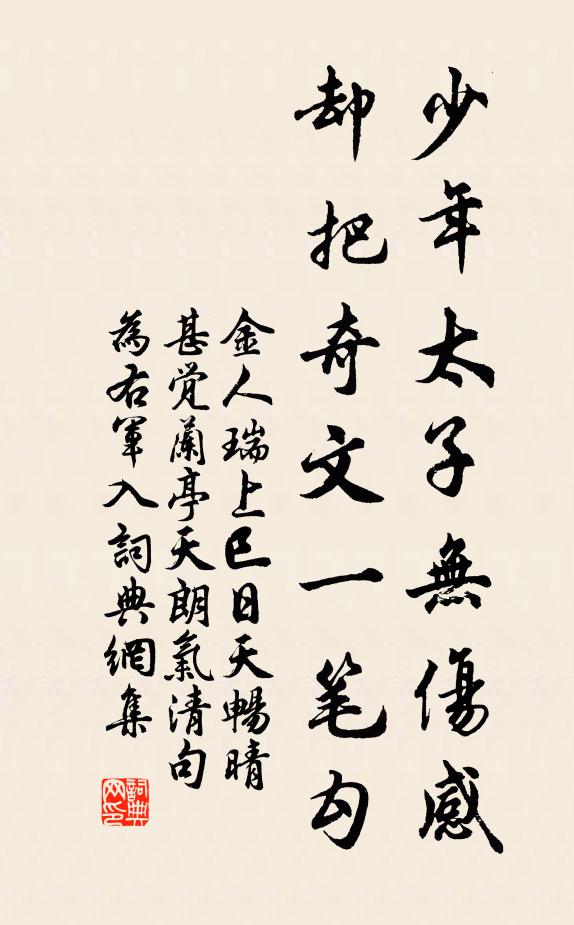 少年太子無傷感
却把奇文一笔勾
金人瑞上巳日天暢晴
甚覺蘭亭天朗氣清句
為右軍入詞典網集
詞典网印